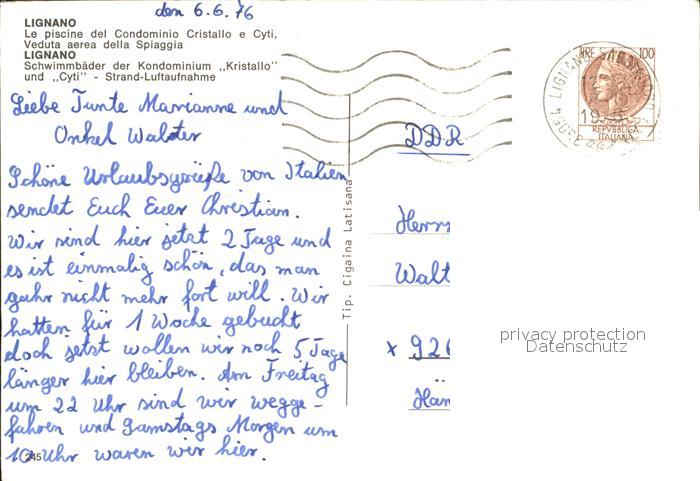 den 6.6.76
LIGNANO
Le piscine del Condominio Cristallo e Cyti,
Veduta aerea della Spiaggia
LIGNANO
Schwimmbäder der Kondominium „Kristallo"
und „Cyti" - Strand-Luftaufnahme
Liebe Tante Marianne und
Onkel Walter
Schöne Urlaubsgrüße von Italien
sendet Euch Euer Christian.
Wir sind hier jetzt 2 Tage und
es ist einmalig schön, das man
gahr nicht mehr fort will. Wir
hatten für 1 Woche gebucht
doch jetzt wollen wir noch 5 Tage
länger hier bleiben. Am Freitag
um 22 Uhr sind wir wegge-
fahren und Samstags Morgen um
10 Uhr waren wir hier.
245
Tip. Cigaina Latisana
LIRE 100
REPVBBLICA
ITALIANA
33054 LIGNANO SABBIADORO
DDR
Herrn
Walt
x 926
Hän
privacy protection
Datenschutz